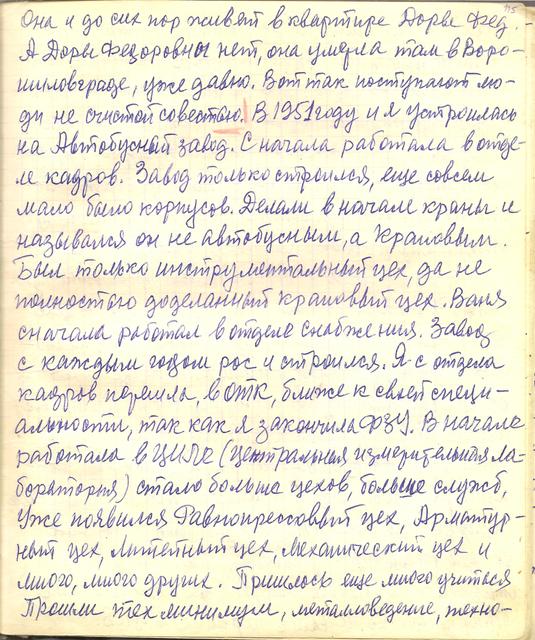 115
Она и до сих пор живёт в квартире Доры Фед.
А Доры Федоровны нет, она умерла там в Воро-
шиловграде, уже давно. Вот так поступают лю-
ди не счистой совестью. В 1951 году и я устроилась
на Автобусный завод. Сначала работала в отде-
ле кадров. Завод только строился, еще совсем
мало было корпусов. Делали в начале краны и
назывался он не автобусным, а Крановым.
Был только инструментальный цех, да не
полностью доделанный крановый цех. Ваня
сначала работал в отделе снабжения. Завод
с каждым годом рос и строился. Я с отдела
кадров перешла, в ОТК, ближе к своей специ-
альности, так как я закончила ФЗУ. В начале
работала в ЦИЛе (Центральная измерительная ла-
боратория) стало больше цехов, больше служб,
Уже появился Равнопрессовый цех, Арматур-
ный цех, Литейный цех, механический цех и
много, много других. Пришлось еще много учиться
Прошли тех минимум, металловедение, техно-